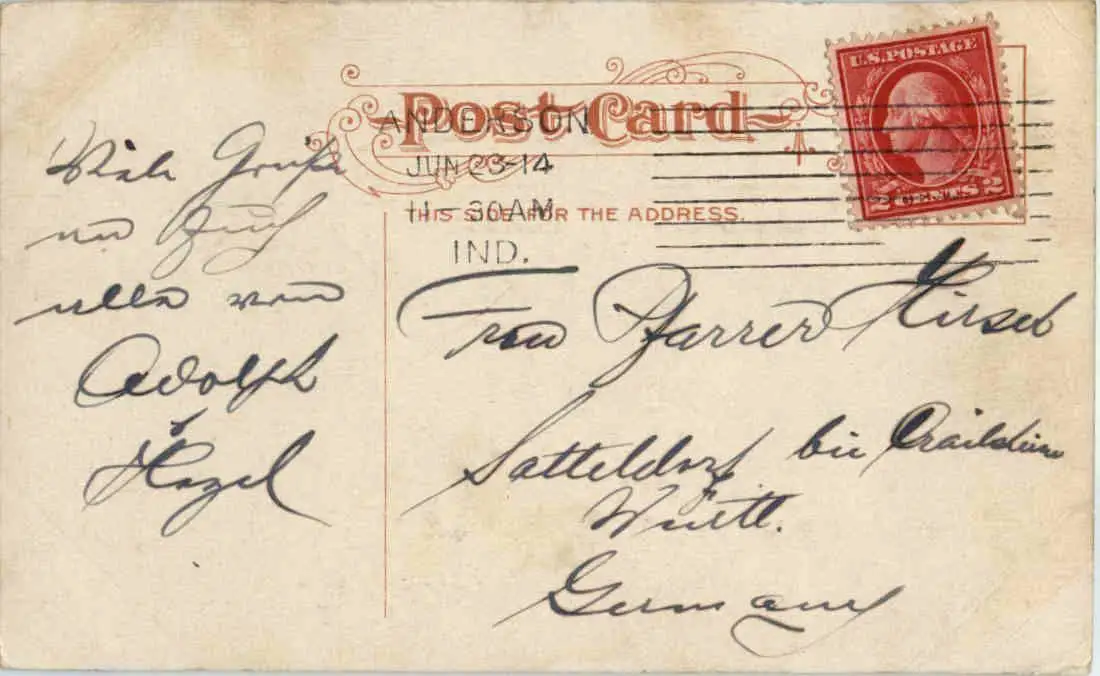 Post Card
ANDERSON
JUN 23-14
11-30AM
IND.
THIS SIDE FOR THE ADDRESS.
U.S. POSTAGE
2 CENTS 2
Viele Grüße
an Euch
alle von
Adolph
& Hazel
Frau Pfarrer Hirsch
Satteldorf bei Crailsheim
Württ.
Germany